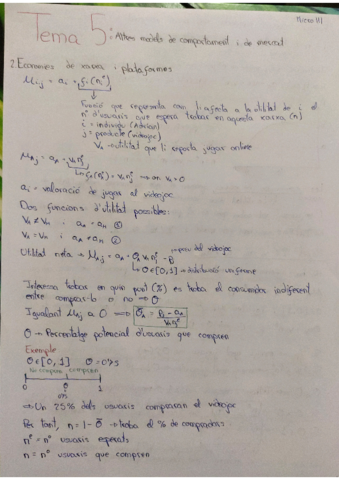 Micro III
Tema 5: Altres models de comportament i de mercat
2. Economies de xarxa i plataformes
μij = ai + fi(nᵉ)
Funció que representa com li afecta a la utilitat de i el
nº d'usuaris que espera trobar en aquesta xarxa (n)
i = individu (Adrian)
j = producte (videojoc)
Va → utilitat que li reporta jugar online
μAj = aA + VA nᵉ
fA(nᵉ) = VA nᵉ → on VA > 0
ai = valoració de jugar al videojoc
Dos funcions d'utilitat possibles:
VA ≠ VM i aA = aM ①
VA = VM i aA ≠ aM ②
Utilitat neta → μAj = aA + θi VA nᵉ - Pj → preu del videojoc
θ ∈ [0,1] → distribució uniforme
Interessa trobar en quin punt (%) es troba el consumidor indiferent
entre comprar-lo o no → θ
Igualant μAj a 0 ⟹ θA = Pj - aA / VA nᵉ
θ → Percentatge potencial d'usuaris que compren
Exemple
θ ∈ [0,1] θ = 0'75
No compren compren
0 θ 1
⇒ Un 25% dels usuaris compraran el videojoc
Per tant, n = 1 - θ → troba el % de compradors
nᵉ = nº usuaris esperats
n = nº usuaris que compren